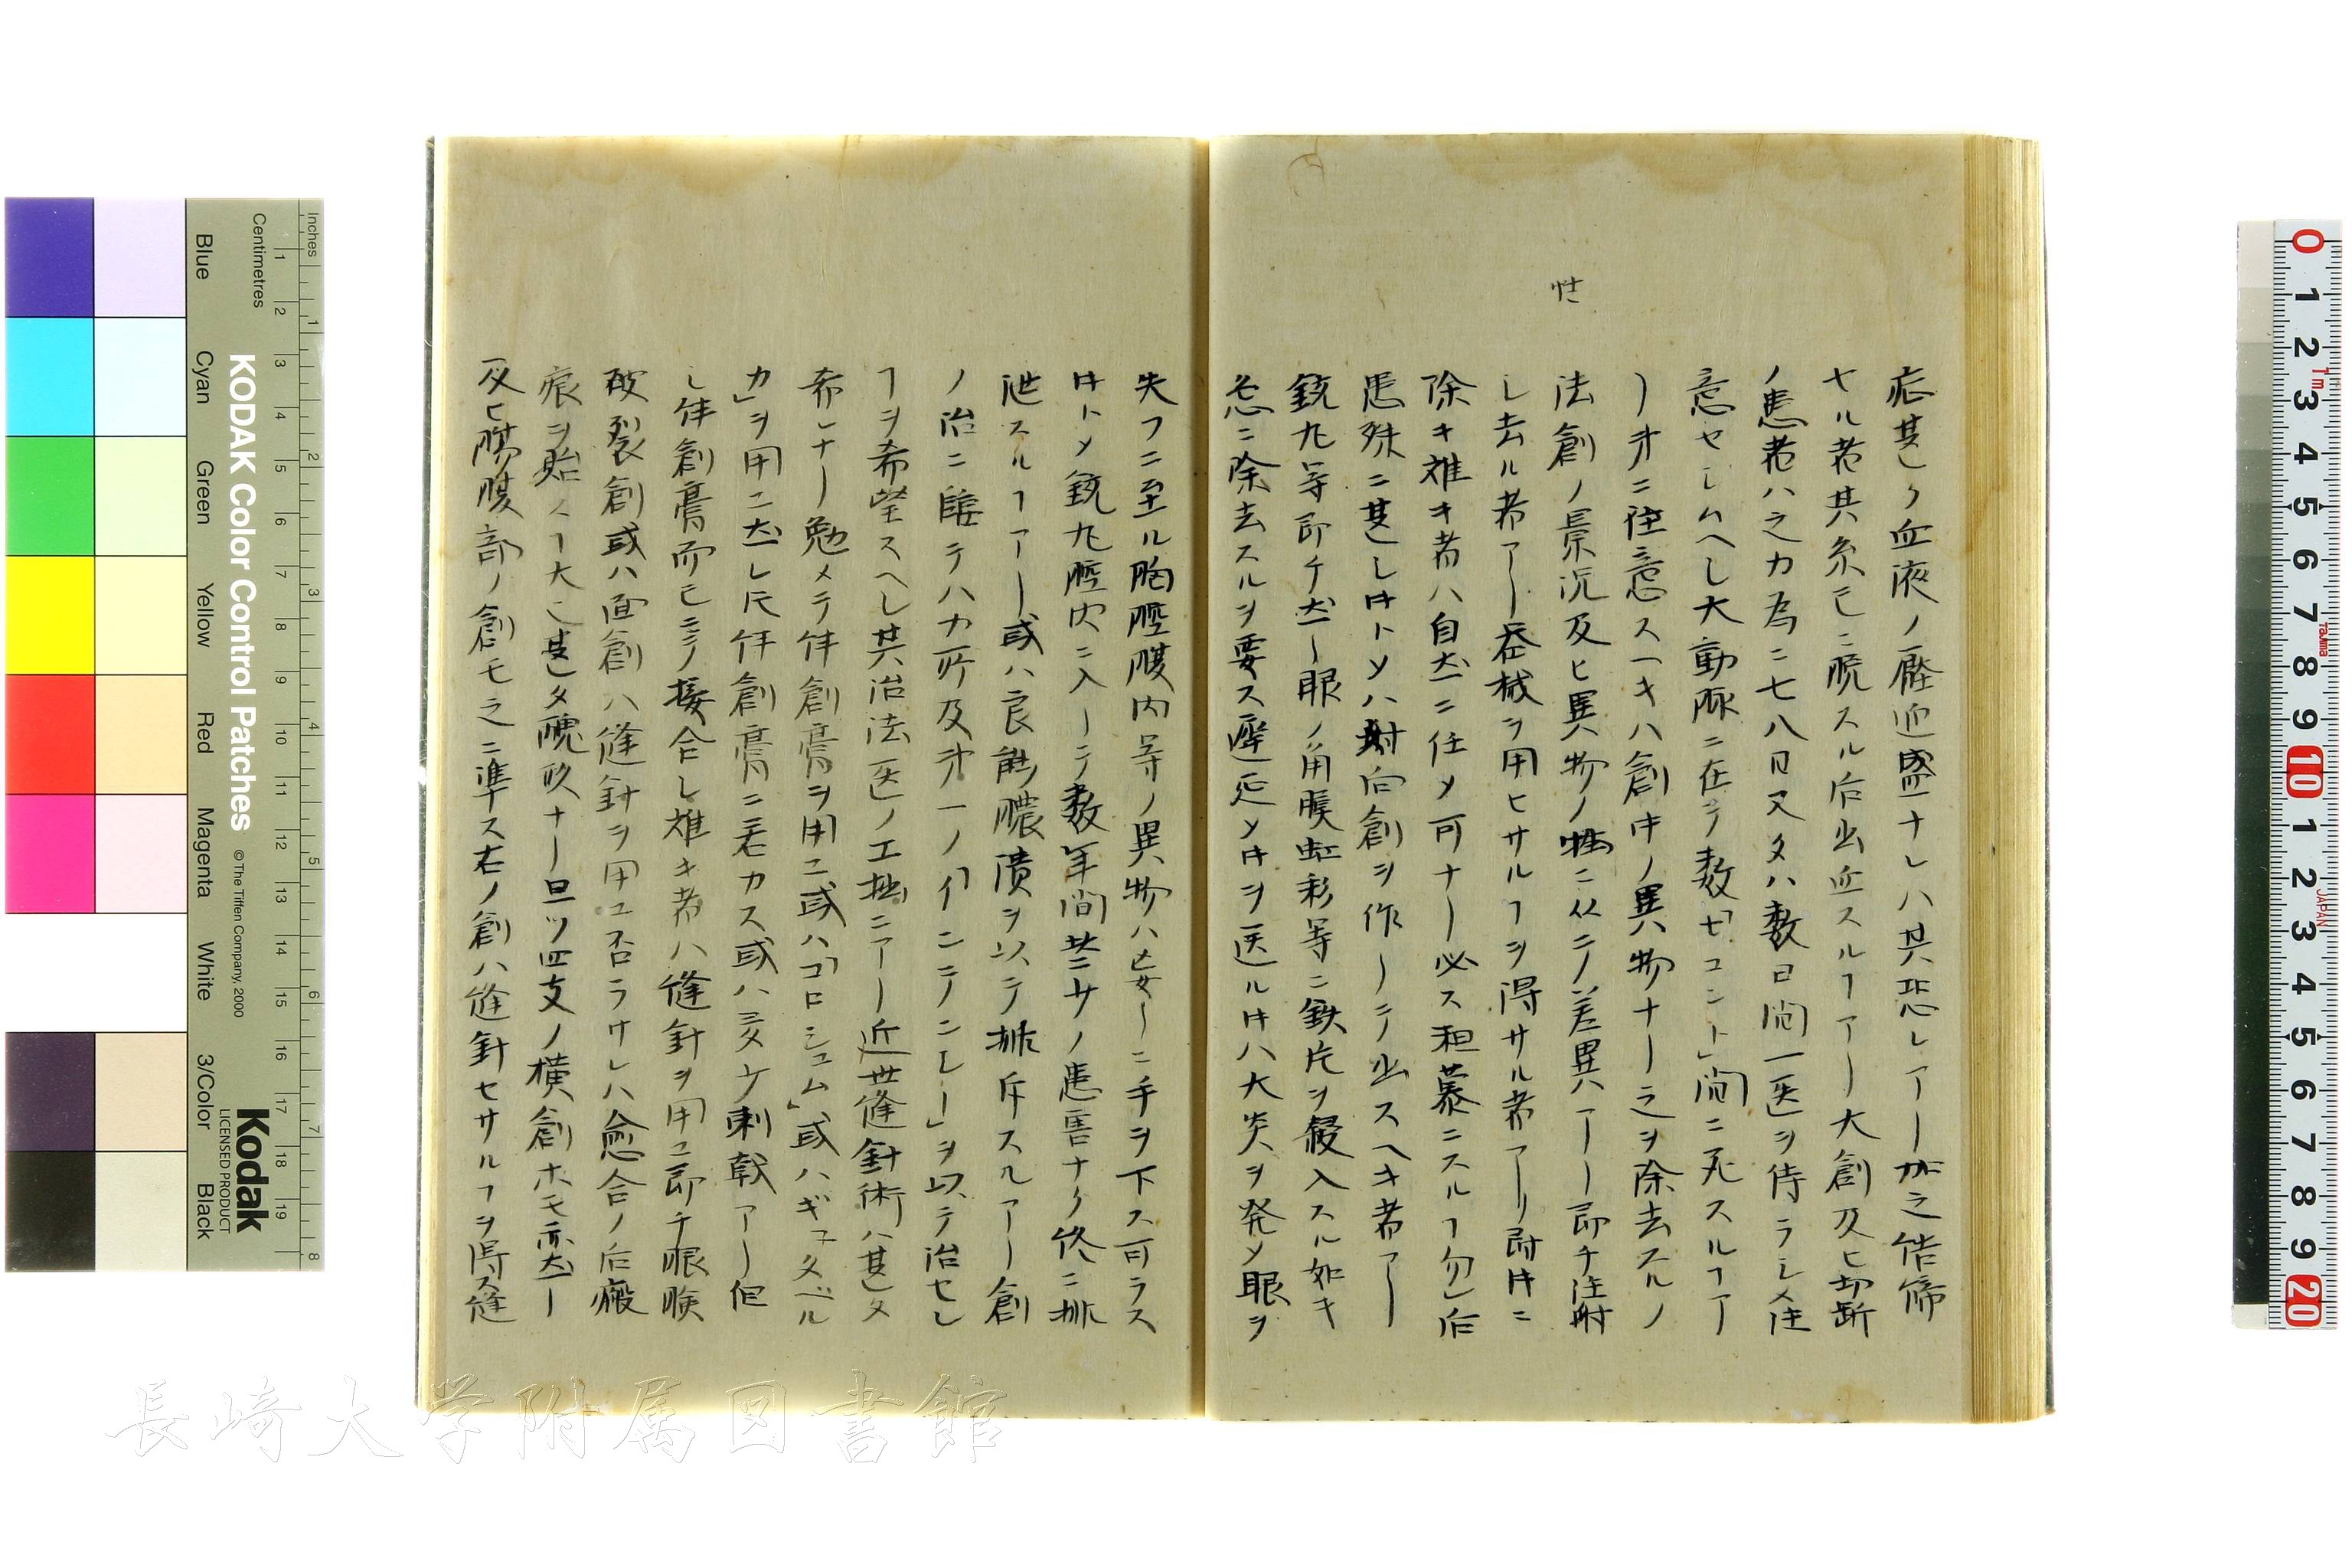 症甚シク血液ノ壓迫盛ナレハ其恐レアリ故之結締
セル者其糸已ニ脱スル后出血スルヿアリ大創及ヒ切断
ノ患者ハ之カ為ニ七八日又タハ数日間一医ヲ侍ラシメ注
意セシムヘシ大動脈ニ在テ数「セコント」間ニ死スルヿア
リ次ニ注意スヘキハ創中ノ異物ナリ之ヲ除去スルノ
法創ノ景況及ヒ異物ノ性ニ従テ差異アリ即チ注射
シ去ル者アリ器械ヲ用ヒサルヿヲ得サル者アリ附片ニ
除キ難キ者ハ自然ニ任メ可ナリ必ス粗暴ニスルヿ勿レ后
患殊ニ甚シ中トメハ対向創ヲ作リテ出スヘキ者アリ
銃丸等即チ然リ眼ノ角膜虹彩等ニ鉄片ヲ侵入スル如キ
急ニ除去スルヲ要ス遅延メ中ヲ送ル片ハ大炎ヲ発メ眼ヲ
失フニ至ル胸腔腹内等ノ異物ハ妄リニ手ヲ下ス可ラス
中トメ銃丸腔内ニ入リテ数年間些少ノ患害ナク終ニ排
泄スルヿアリ或ハ良能膿潰ヲ以テ排斥スルアリ創
ノ治ニ臨テハ力所及第一ノ「インテンシー」ヲ以テ治セン
ヿヲ希望スヘシ其治法医ノ工拙ニアリ近世縫針術ハ甚タ
希レナリ勉メテ絆創膏ヲ用ユ或ハ「コロシュム」或ハギュタベル
カ」ヲ用ユ然レ𪜈絆創膏ニ若カス或ハ受ケ刺戟アリ但
シ絆創膏而已ニテ接合シ難キ者ハ縫針ヲ用ユ即チ眼瞼
破裂創或ハ面創ハ縫針ヲ用ユ否ラサレハ愈合ノ后瘢
痕ヲ貽スヿ大ニ甚タ醜状ナリ且ツ四支ノ横創ホモ亦然リ
及ヒ腸腹部ノ創モ之ニ準ス右ノ創ハ縫針セサルヿヲ得ス縫
性
長崎大学附属図書館
KODAK Color Control Patches
© The Tiffen Company, 2000
Kodak
LICENSED PRODUCT
Inches
Centimetres
Blue
Cyan
Green
Yellow
Red
Magenta
White
3/Color
Black